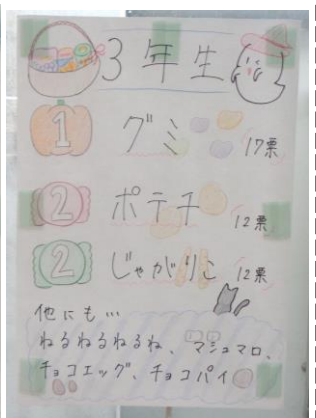 3年生
1 グミ 17票
2 ポテチ 12票
2 じゃがりこ 12票
他にも…
ねるねるねるね、マシュマロ、
チョコエッグ、チョコパイ